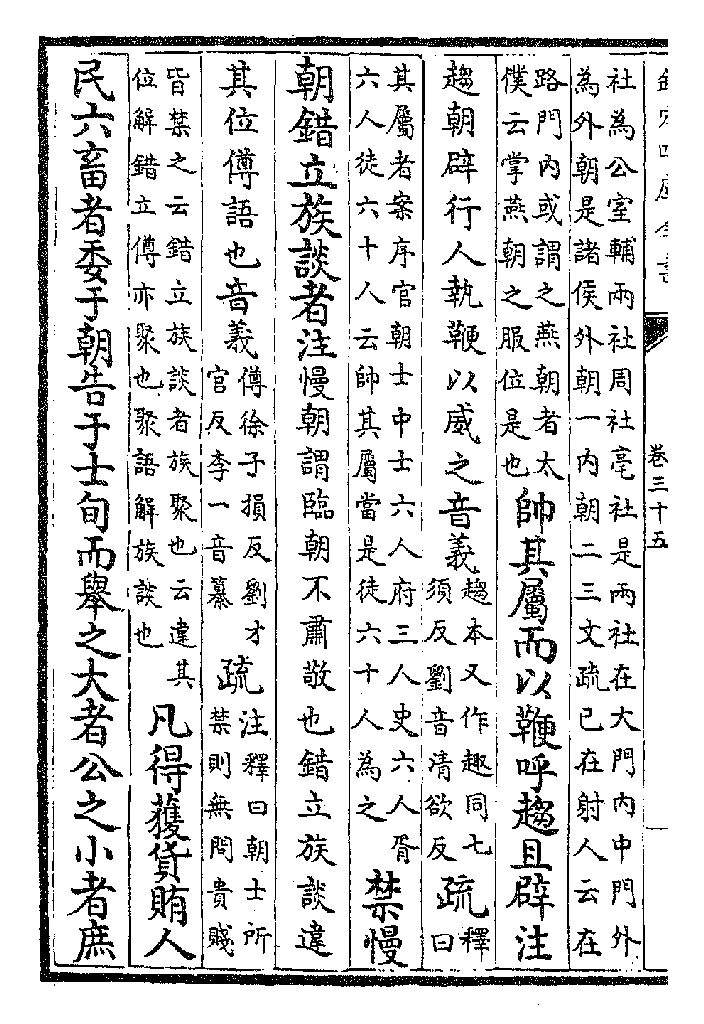 卷三十五
社為公室輔兩社周社亳社是兩社在大門內中門外
為外朝是諸侯外朝一內朝二三文疏已在射人云在
路門內或謂之燕朝者太
僕云掌燕朝之服位是也
帥其屬而以鞭呼趨且辟注
趨朝辟行人執鞭以威之音義
趨本又作趣同七
須反劉音清欲反
疏
釋
曰
其屬者案序官朝士中士六人府三人史六人胥
六人徒六十人云帥其屬當是徒六十人為之
禁慢
朝錯立族談者注慢朝謂臨朝不肅敬也錯立族談違
其位僔語也音義
僔徐子損反劉才
官反李一音纂
疏
注釋曰朝士所
禁則無問貴賤
皆禁之云錯立族談者族聚也云違其
位解錯立僔亦聚也聚語解族談也
凡得獲貨賄人
民六畜者委于朝告于士旬而舉之大者公之小者庶